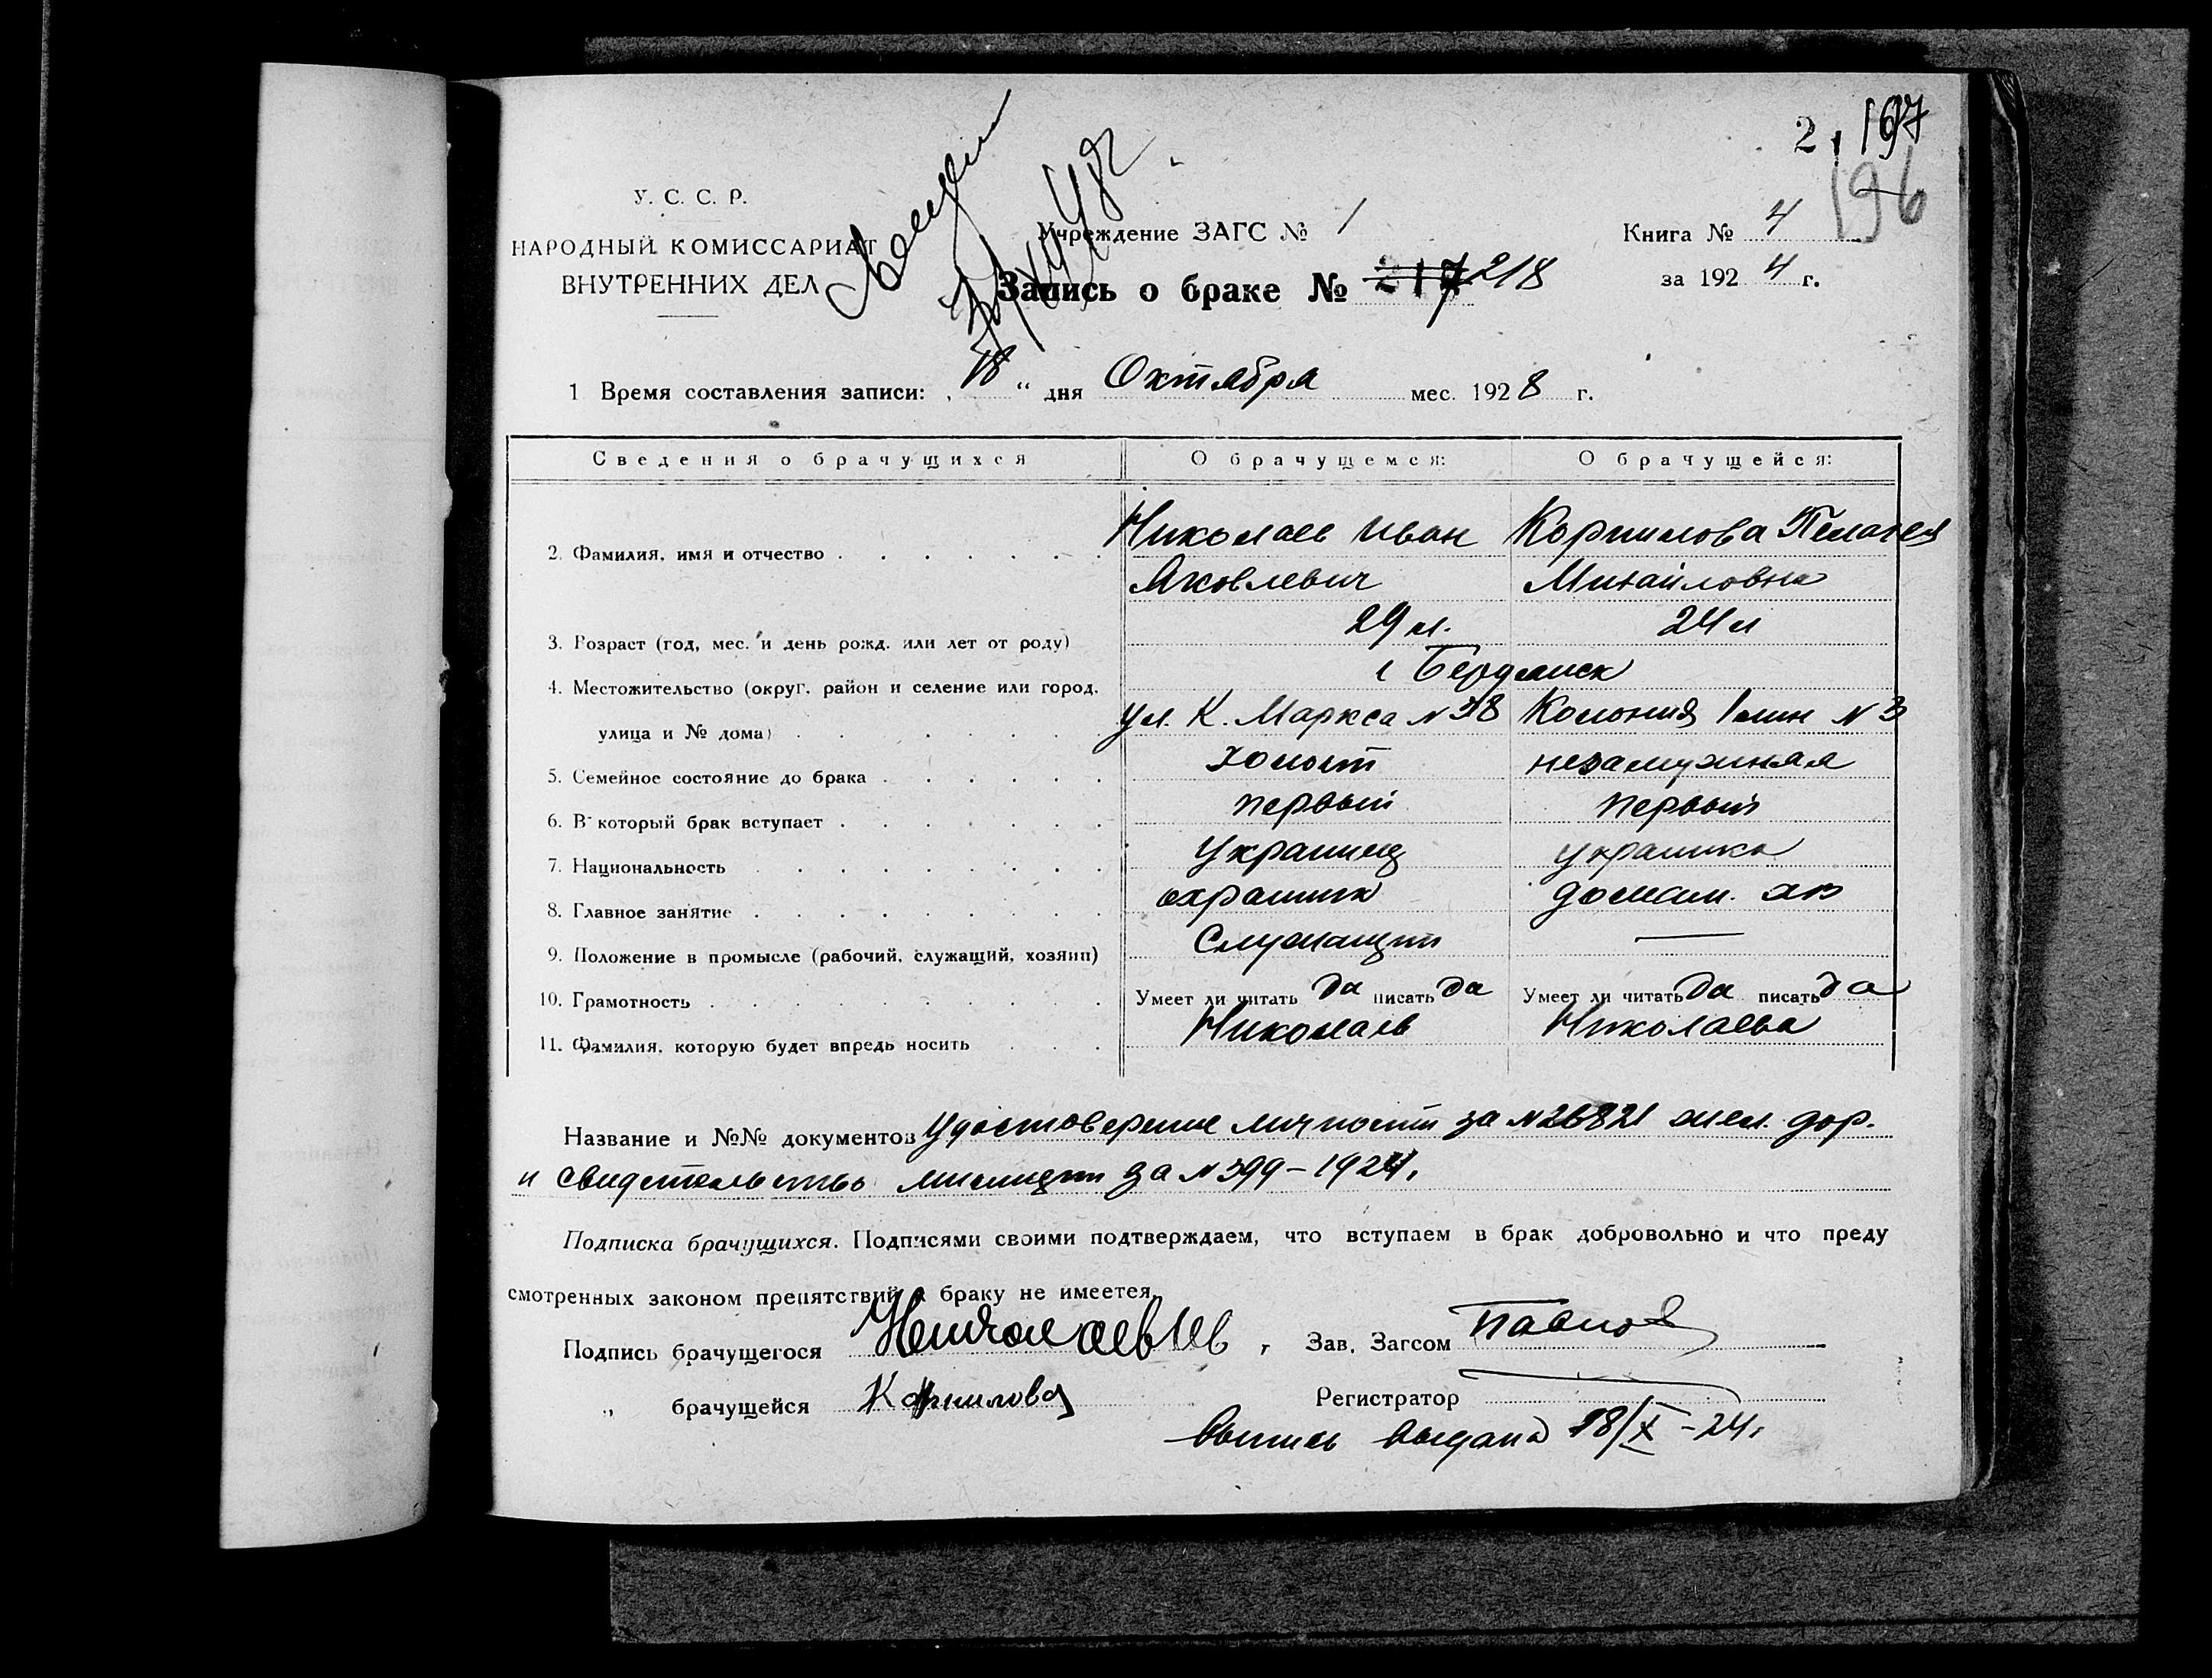 2. 197
196
У. С. С. Р.
НАРОДНЫЙ КОМИССАРИАТ
ВНУТРЕННИХ ДЕЛ
Учреждение ЗАГС № 1
Книга № 4
за 1924 г.
Запись о браке № 217 218
1 Время составления записи: „18“ дня Октября мес. 1928 г.
Сведения о брачущихся О брачущемся: О брачущейся:
2. Фамилия, имя и отчество Николаев Иван Корнилова Пелагея
Яковлевич Михайловна
3. Возраст (год, мес. и день рожд. или лет от роду) 29 л. 24 л
4. Местожительство (округ, район и селение или город, г Бердянск
улица и № дома) ул. К. Маркса N 38 Колония 1 лин N 3
5. Семейное состояние до брака холост незамужняя
6. В который брак вступает первый первый
7. Национальность украинец украинка
8. Главное занятие охранник домаш. хоз
9. Положение в промысле (рабочий, служащий, хозяин) Служащий —
10. Грамотность Умеет ли читать да писать да Умеет ли читать да писать да
11. Фамилия, которую будет впредь носить Николаев Николаева
Название и №№ документов Удостоверение личности за N 26821 жел. дор.
и свидетельство милиции за N 399 – 1924.
Подписка брачущихся. Подписями своими подтверждаем, что вступаем в брак добровольно и что преду
смотренных законом препятствий к браку не имеется.
Подпись брачущегося Зав. Загсом Павлов
„ брачущейся Корнилова Регистратор
Выпись выдана 18/X – 24.